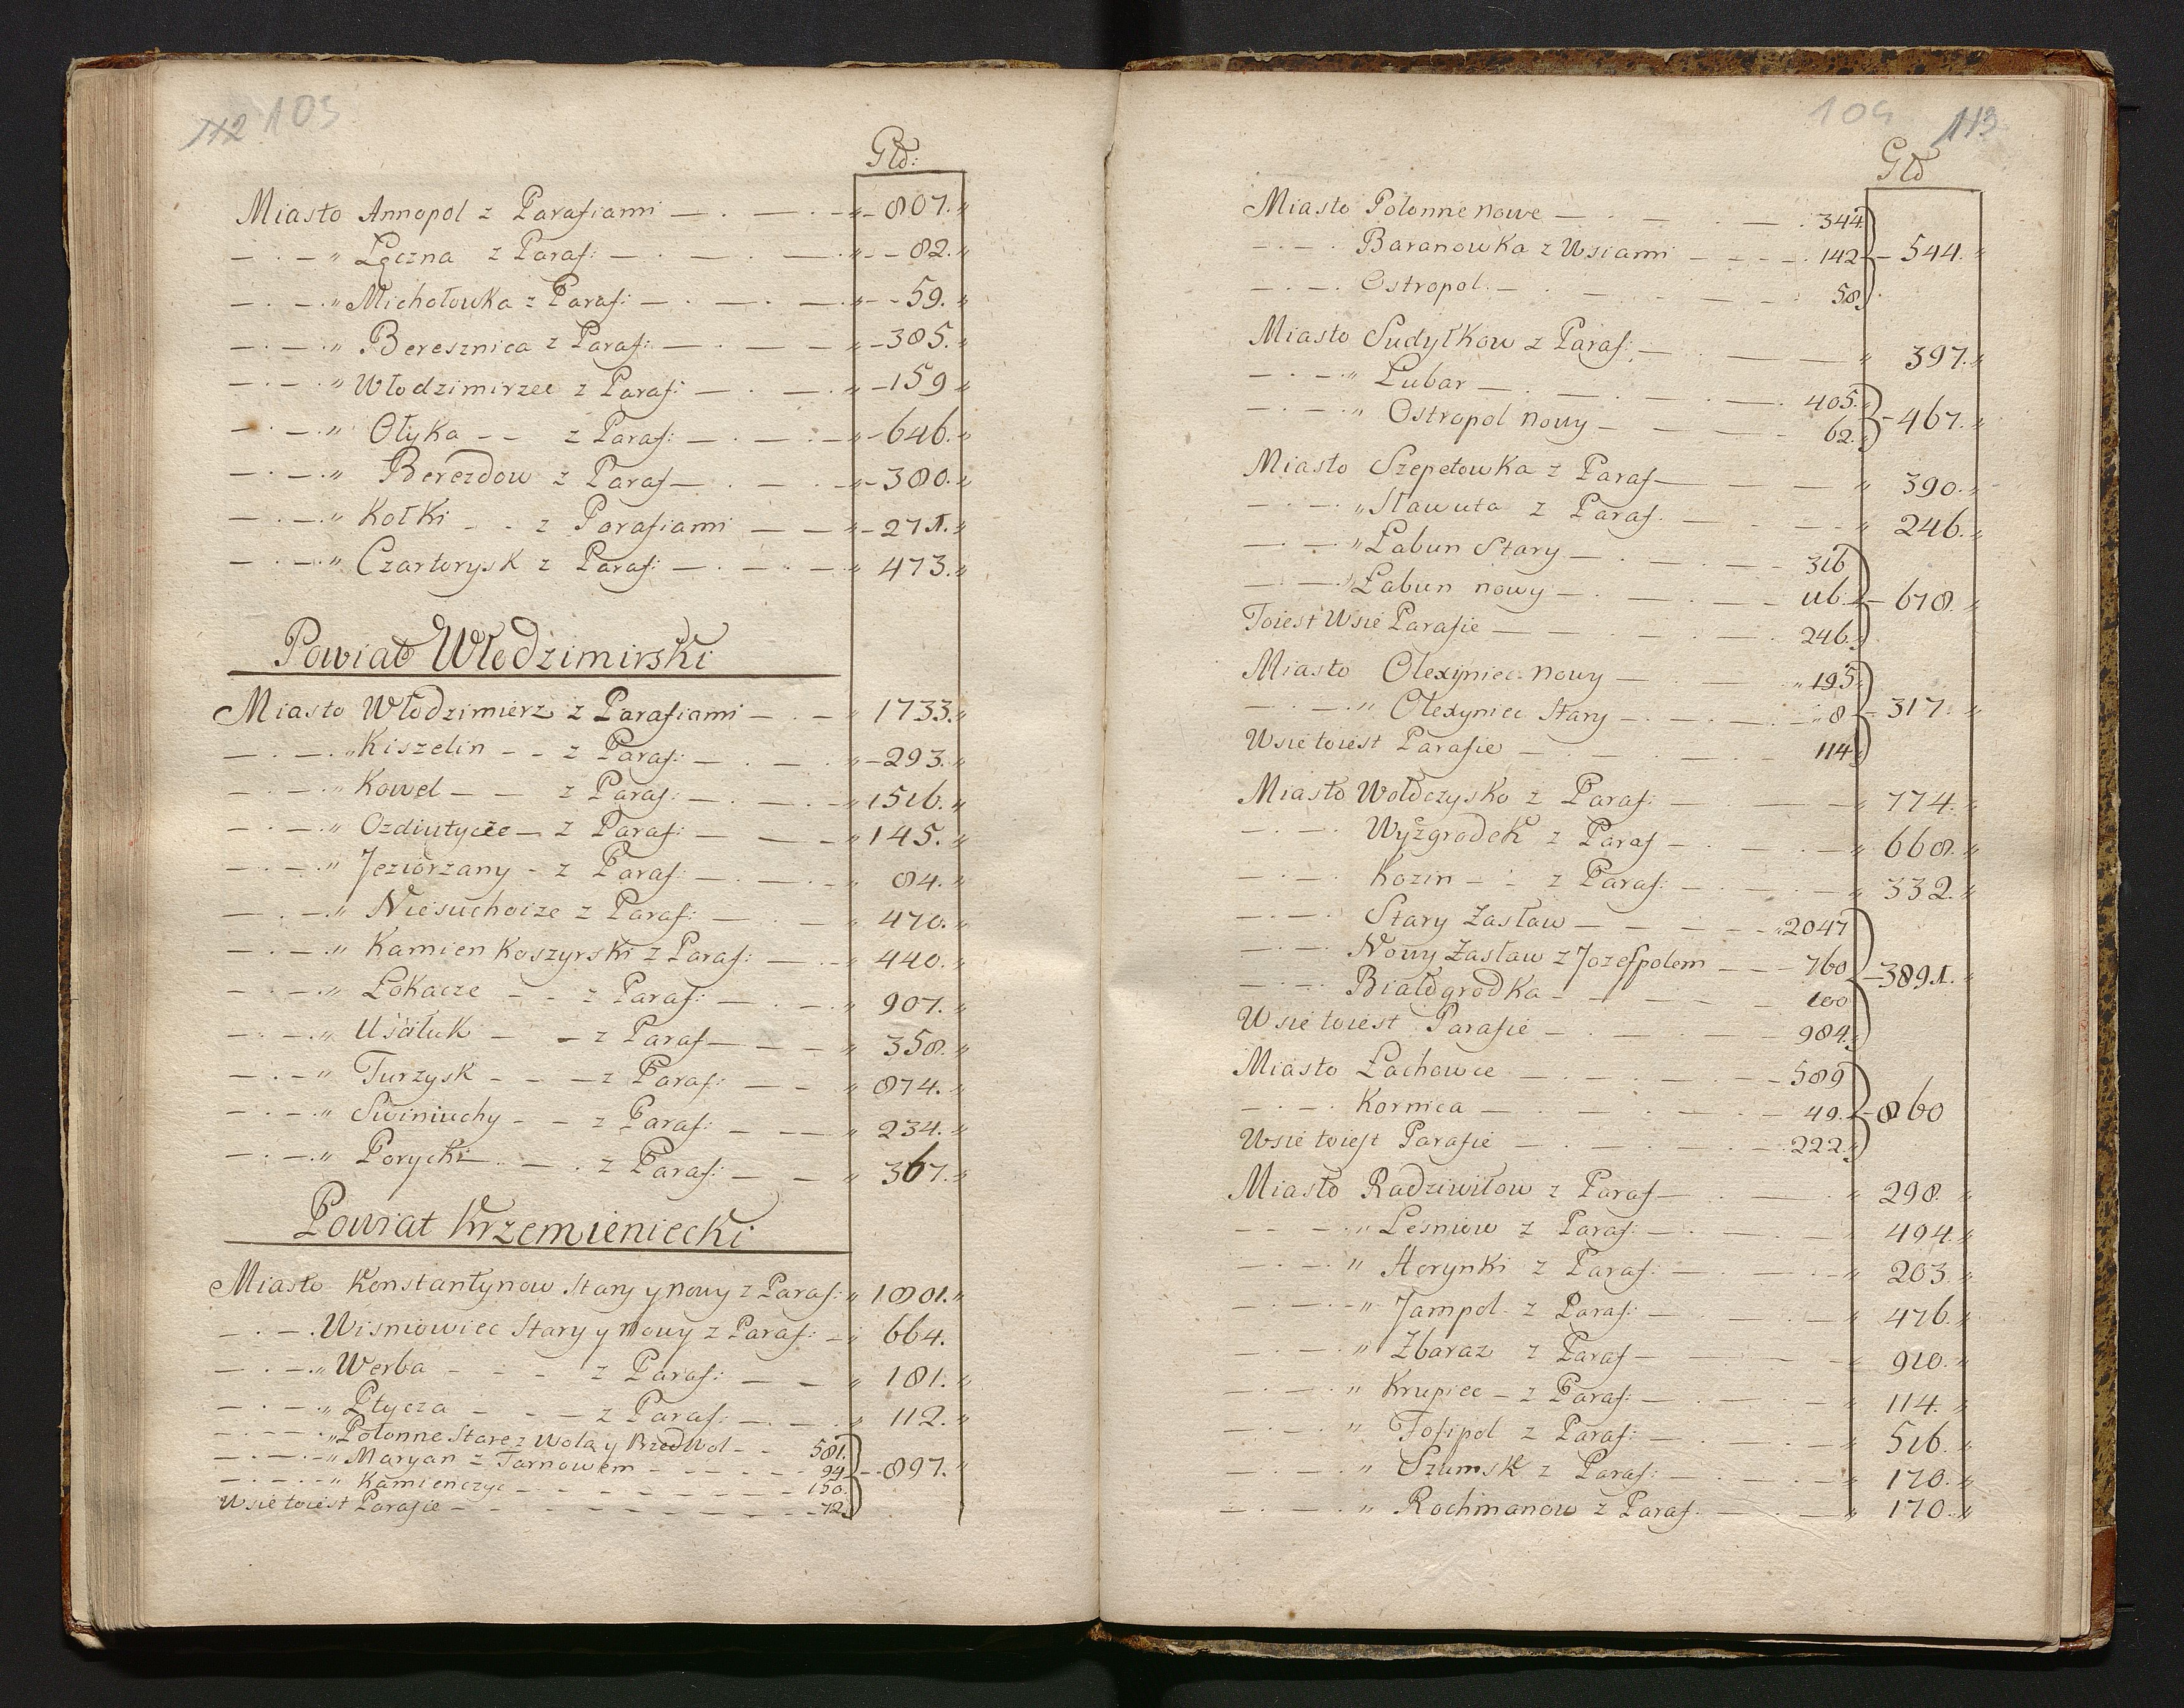 112 103
Głd:
Miasto Annopol z Parafiami — . — . — 807.
— . — " Łęczna z Paraf: — . — . — 82.
— . — " Michołowka z Paraf: — . — . — 59.
— . — " Beresznica z Paraf: — . — — 385.
— . — " Włodzimirzec z Paraf: — . — 159
— . — " Ołyka - - z Paraf: — . — . — 646.
— . — " Berezdow z Paraf — . — . — 380.
— . — " Kołki - - z Parafiami — — 271.
— . — " Czartorysk z Paraf: — . — . — 473.
Powiat Włodzimirski
Miasto Włodzimierz z Parafiami — . — 1733.
— . — " Kiszelin - - z Paraf: — . — . 293.
— . — " Kowel - — z Paraf: — . — . 1516.
— . — " Ozdiutycze — z Paraf: — — 145.
— . — " Jeziorzany - z Paraf: — . — . 84.
— . — " Niesuchoize z Paraf: — . — 470.
— . — " Kamien Koszyrski z Paraf: — . — 440.
— . — " Łokacze - - z Paraf: — . — 907.
— . — " Uściłuk - - z Paraf — — — 358.
— . — " Turzysk - - — z Paraf: — — 874.
— . — " Swiniuchy - - z Paraf: — — 234.
— . — " Porycki — . z Paraf: — — 367.
Powiat Krzemieniecki
Miasto Konstantynow Stary y nowy z Paraf: 1801.
— . — . Wisniowiec Stary y Nowy z Paraf: — 664.
— . — " Werba - - - z Paraf: — — 181.
— . — " Ptycza - - — z Paraf: — . — . 112.
— . — " Połonne Stare z Wolą y Przedwol - - 581.
— . — " Maryan z Tarnowem - - - - 94. - 897.
— . — " Kamienczyc - - - - - 150.
Wsie toiest Parafie - - - - - 72.
104 113
Głd
Miasto Połonne nowe — . — . — . 344.
— . — . Baranowka z Wsiami - - - . 142 - 544.
— . — . Ostropol. — . — . — 58.
Miasto Sudyłkow z Paraf: — . — — 397.
— . — " Lubar — . — . — . — 405.
— . — " Ostropol Nowy — - — - 62. - 467.
Miasto Szepetowka z Paraf — — — 390.
— . — " Sławuta z Paraf. — . — . — 246.
— . — " Łabun Stary — . — . — 316
— . — " Łabun nowy — . — . — 116. — 678.
Toiest Wsie Parafie — — . — . — 246.
Miasto Olexyniec Nowy — . — " 195
— . — " Olexyniec Stary — . — . — " 8 — 317.
Wsie toiest Parafie — . — . — 114.
Miasto Wołoczysko z Paraf: — . — — 774.
— . — . Wyżgrodek z Paraf — . — . — 668.
— . — . Kozin - : z Paraf: — . — . — 332.
— . — . Stary Zasław — - - - - 2047
— . — . Nowy Zasław z Jozefpolem — — 760 — 3891.
— . — . Białogrodka - - - — 100
Wsie toiest Parafie — . — . — 984.
Miasto Łachowce — . — . — . — 589
— . — . Kornica — . — . — . — 49. — 860
Wsie toiest Parafie — . — . — 222.
Miasto Radziwiłow z Paraf — . — . 298.
— . — " Lesniow z Paraf: — . — . 494.
— . — " Horynki z Paraf: — . — . — 203.
— . — " Jampol. z Paraf: — . — . — 476.
— . — " Zbaraz z Paraf — — — 910.
— . — " Krupiec — z Paraf: — . — . — 114.
— . — " Tofipol z Paraf: — . — . — 516.
— . — " Szumsk z Paraf: — . — . — 170.
— . — " Rochmanow z Paraf. — . — 170.